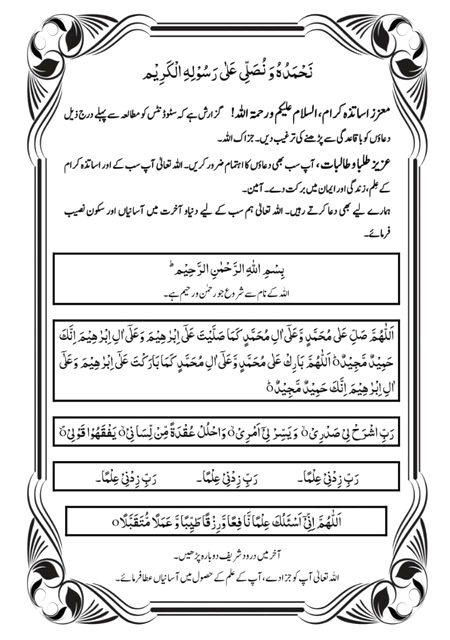 نَحْمَدُهٗ وَ نُصَلِّیْ عَلٰی رَسُوْلِہِ الْکَرِیْم
معزز اساتذہ کرام، السلام علیکم ورحمۃ اللہ! گزارش ہے کہ سٹوڈنٹس کو مطالعہ سے پہلے درج ذیل
دعاؤں کو باقاعدگی سے پڑھنے کی ترغیب دیں۔ جزاک اللہ۔
عزیز طلبا و طالبات، آپ سب بھی دعاؤں کا اہتمام ضرور کریں۔ اللہ تعالیٰ آپ سب کے اور اساتذہ کرام
کے علم، زندگی اور ایمان میں برکت دے۔ آمین۔
ہمارے لیے بھی دعا کرتے رہیں۔ اللہ تعالیٰ ہم سب کے لیے دنیا و آخرت میں آسانیاں اور سکون نصیب
فرمائے۔
بِسْمِ اللهِ الرَّحْمٰنِ الرَّحِيْمِ ؕ
اللہ کے نام سے شروع جو رحمٰن و رحیم ہے۔
اَللّٰهُمَّ صَلِّ عَلٰى مُحَمَّدٍ وَّعَلٰٓى اٰلِ مُحَمَّدٍ كَمَا صَلَّيْتَ عَلٰٓى اِبْرٰهِيْمَ وَعَلٰٓى اٰلِ اِبْرٰهِيْمَ اِنَّكَ
حَمِيْدٌ مَّجِيْدٌ ○ اَللّٰهُمَّ بَارِكْ عَلٰى مُحَمَّدٍ وَّعَلٰٓى اٰلِ مُحَمَّدٍ كَمَا بَارَكْتَ عَلٰٓى اِبْرٰهِيْمَ وَعَلٰٓى
اٰلِ اِبْرٰهِيْمَ اِنَّكَ حَمِيْدٌ مَّجِيْدٌ ○
رَبِّ اشْرَحْ لِيْ صَدْرِيْ ○ وَيَسِّرْ لِيْٓ اَمْرِيْ ○ وَاحْلُلْ عُقْدَةً مِّنْ لِّسَانِيْ ○ يَفْقَهُوْا قَوْلِيْ ○
رَبِّ زِدْنِيْ عِلْمًا۔ رَبِّ زِدْنِيْ عِلْمًا۔ رَبِّ زِدْنِيْ عِلْمًا۔
اَللّٰهُمَّ اِنِّيْٓ اَسْئَلُكَ عِلْمًا نَّافِعًا وَّرِزْقًا طَيِّبًا وَّعَمَلًا مُّتَقَبَّلًا ○
آخر میں درود شریف دوبارہ پڑھیں۔
اللہ تعالیٰ آپ کو جزا دے، آپ کے علم کے حصول میں آسانیاں عطا فرمائے۔